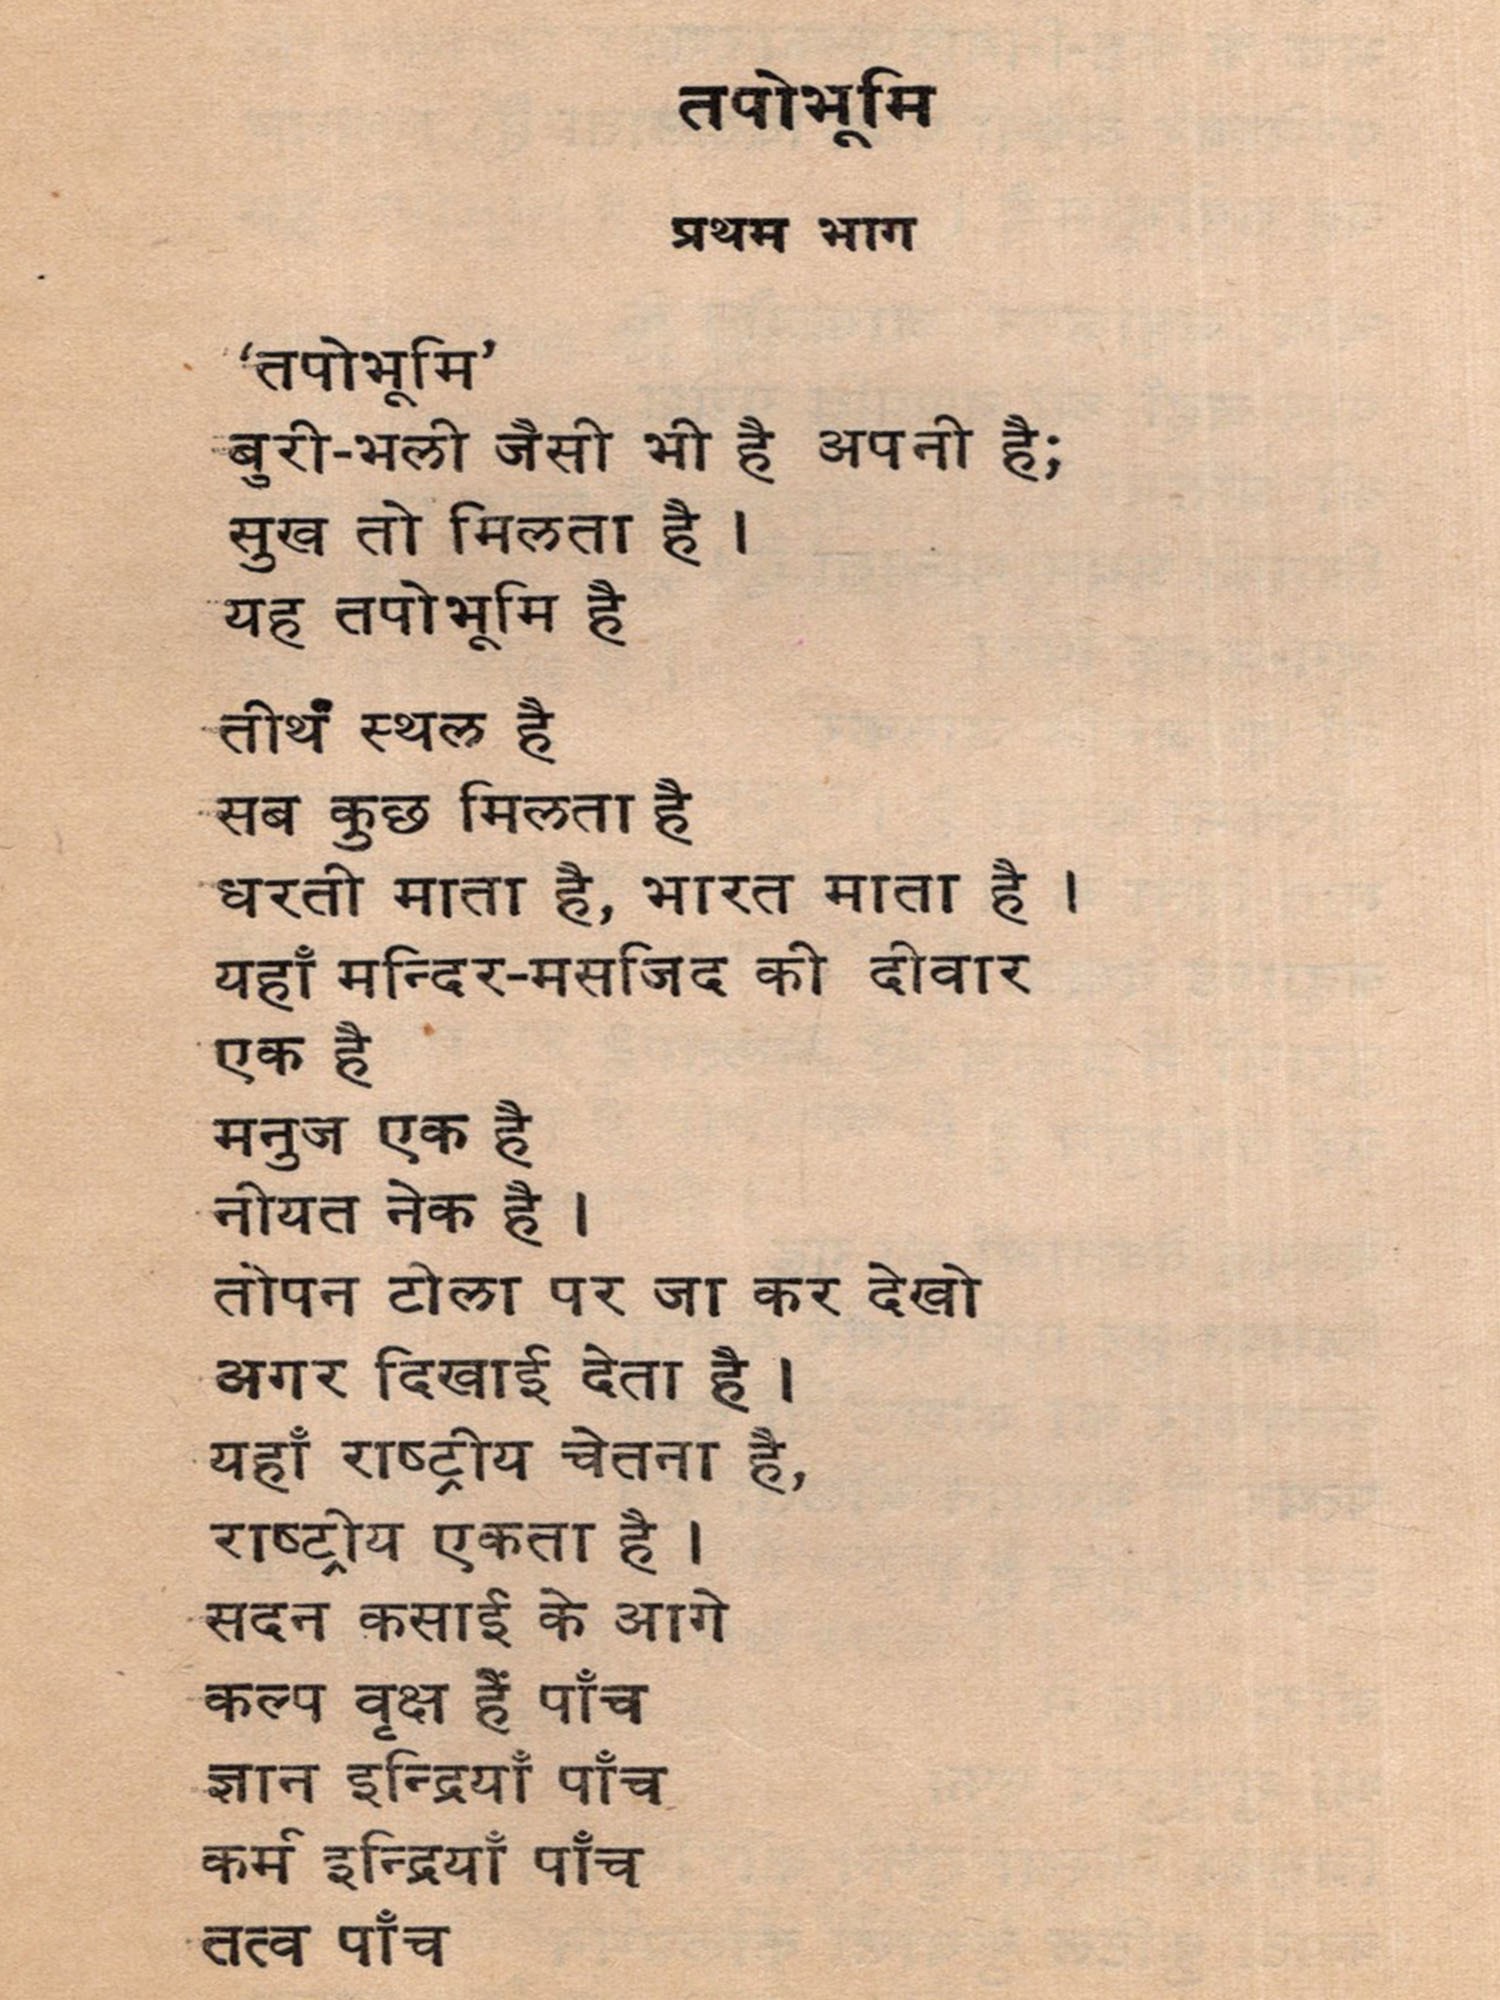 तपोभूमि
प्रथम भाग
‘तपोभूमि’
बुरी-भली जैसी भी है अपनी है;
सुख तो मिलता है ।
यह तपोभूमि है
तीर्थ स्थल है
सब कुछ मिलता है
धरती माता है, भारत माता है ।
यहाँ मन्दिर-मसजिद की दीवार
एक है
मनुज एक है
नीयत नेक है ।
तोपन टोला पर जा कर देखो
अगर दिखाई देता है ।
यहाँ राष्ट्रीय चेतना है,
राष्ट्रीय एकता है ।
सदन कसाई के आगे
कल्प वृक्ष हैं पाँच
ज्ञान इन्द्रियाँ पाँच
कर्म इन्द्रियाँ पाँच
तत्व पाँच